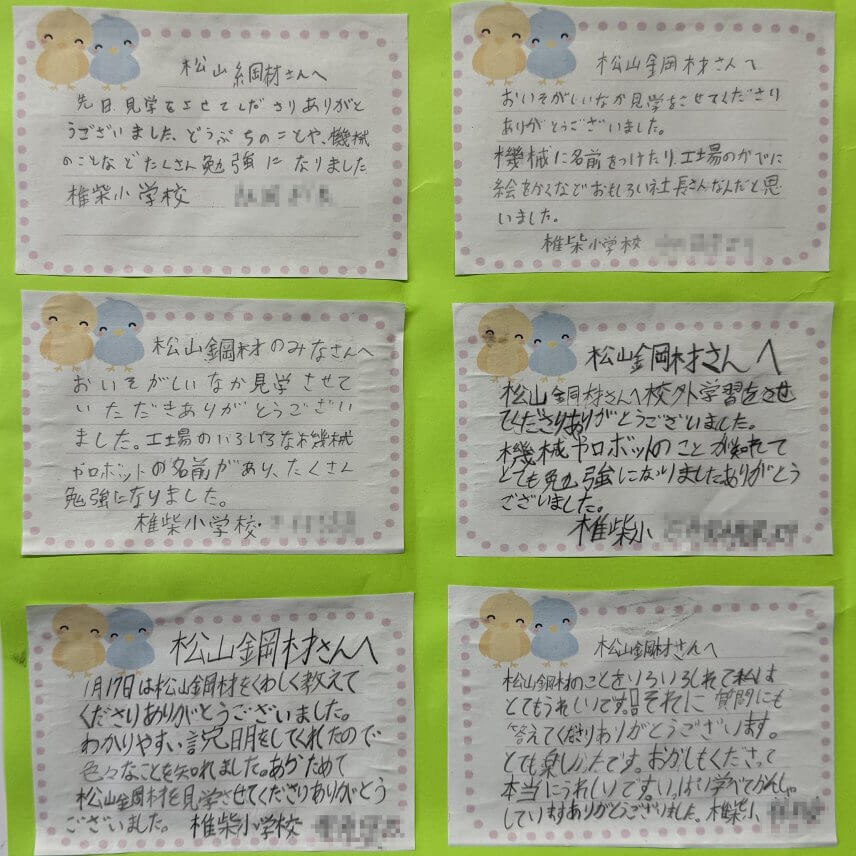 松山綱材さんへ
先日、見学をさせてくださりありがと
うございました、どうぶちのことや、機械
のことなどたくさん勉強になりました
椎柴小学校
松山鋼材さんへ
おいそがしいなか見学をさせてくださり
ありがとうございました。
機械に名前をつけたり、工場のかべに
絵をかくなどおもしろい社長さんなんだと思
いました。
椎柴小学校
松山鋼材のみなさんへ
おいそがしいなか見学させて
いただきありがとうござい
ました。工場のいろいろな機械
やロボットの名前があり、たくさん
勉強になりました。
椎柴小学校
松山鋼材さんへ
松山鋼材さんへ校外学習をさせ
てくださりありがとうございました。
機械やロボットのことが知れて
とても勉強になりましたありがとう
ございました。
椎柴小
松山鋼材さんへ
1月17日は松山鋼材をくわしく教えて
くださりありがとうございました。
わかりやすい説明をしてくれたので
色々なことを知れました。あらためて
松山鋼材を見学させてくださりありがとう
ございました。椎柴小学校
松山鋼材さんへ
松山鋼材のことをいろいろしれて私は
とてもうれしいです。それに質問にも
答えてくださりありがとうございます。
とても楽しかったです。おかしもくださって
本当にうれしいです。いっぱい学べてかんしゃ
していますありがとうございました。椎柴小